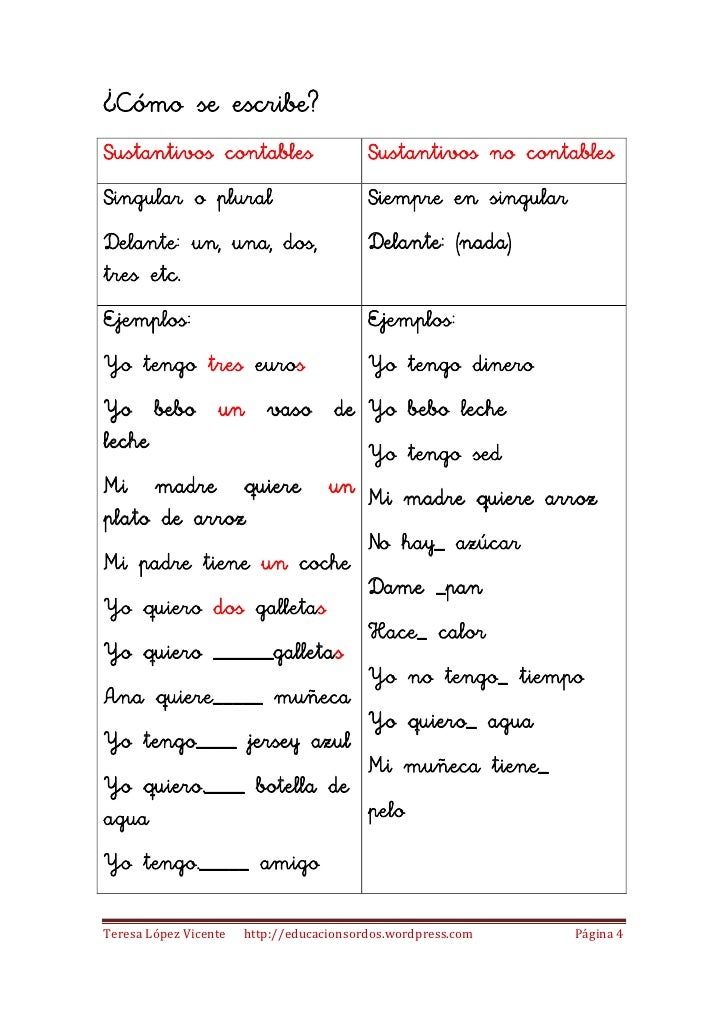 ¿Cómo se escribe?
Sustantivos contables
Sustantivos no contables
Singular o plural
Delante: un, una, dos,
tres etc.
Siempre en singular
Delante: (nada)
Ejemplos:
Yo tengo tres euros
Yo bebo un vaso de
leche
Mi madre quiere un
plato de arroz
Mi padre tiene un coche
Yo quiero dos galletas
Yo quiero ______galletas
Ana quiere_____ muñeca
Yo tengo____ jersey azul
Yo quiero.____ botella de
agua
Yo tengo._____ amigo
Ejemplos:
Yo tengo dinero
Yo bebo leche
Yo tengo sed
Mi madre quiere arroz
No hay_ azúcar
Dame _pan
Hace_ calor
Yo no tengo_ tiempo
Yo quiero_ agua
Mi muñeca tiene_
pelo
Teresa López Vicente http://educacionsordos.wordpress.com Página 4